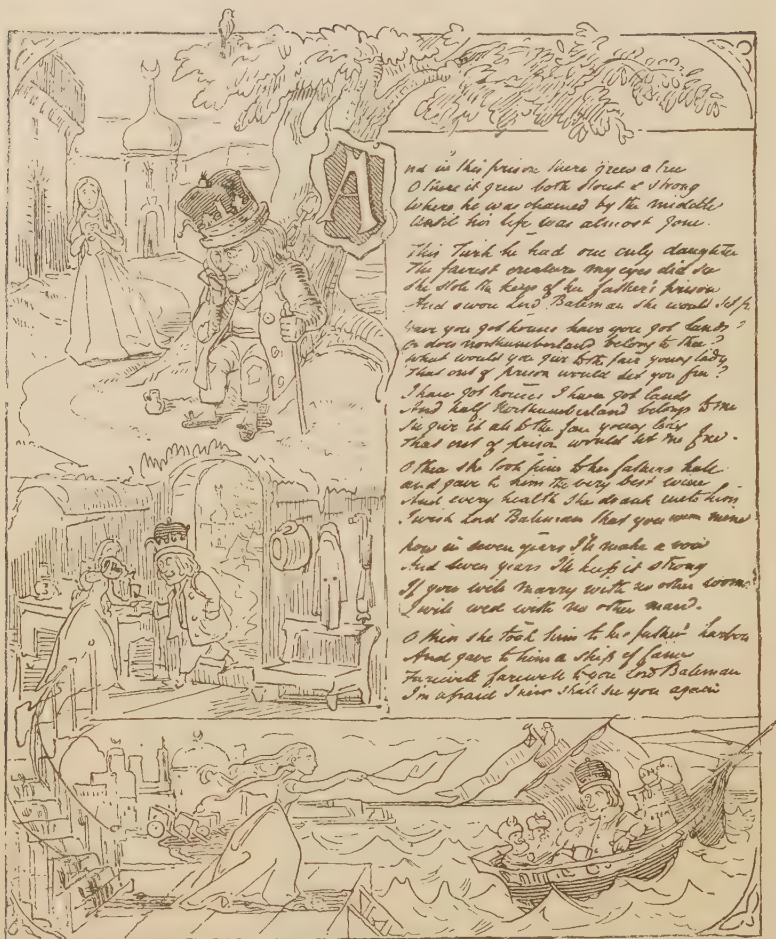 And in this prison there grew a tree
O there it grew both stout & strong
Where he was chained by the middle
Until his life was almost gone.
This Turk he had one only daughter
The fairest creature my eyes did see
She stole the keys of her father's prison
And swore Lord Bateman she would set fr
Have you got houses have you got lands?
Or does Northumberland belong to thee?
What would you give to the fair young lady
That out of prison would set you free?
I have got houses I have got lands
And half Northumberland belongs to me
I'll give it all to the fair young lady
That out of prison would let me free.
O then she took him to her fathers hall
and gave to him the very best wine
And every health she drank unto him
I wish Lord Bateman that you were mine
Now in seven years I'll make a vow
And seven years I'll keep it strong
If you will marry with no other woman
I will wed with no other man.
O then she took him to her father's harbour
And gave to him a ship of fame
Farewell farewell to you Lord Bateman
I'm afraid I never shall see you again